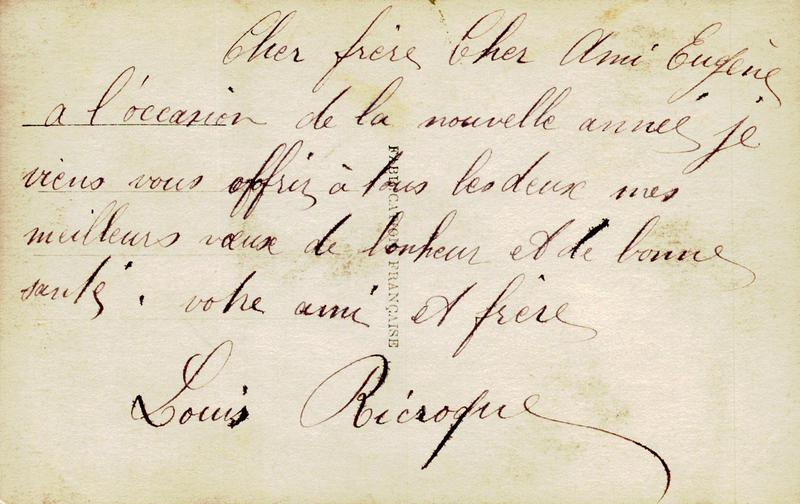 Cher frère Cher Ami Eugène
a l'occasion de la nouvelle année je
viens vous offrir à tous les deux mes
meilleurs vœux de bonheur et de bonne
santé. votre ami et frère
Louis Ricroque
FABRICATION FRANÇAISE